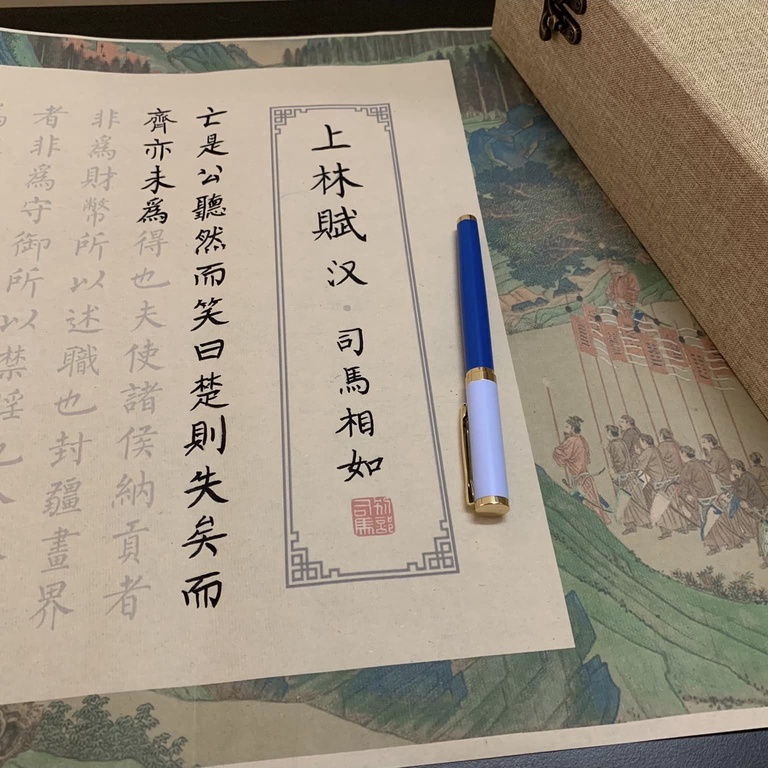 上林賦 汉·司馬相如
別部司馬
亡是公聽然而笑曰楚則失矣而
齊亦未爲得也夫使諸侯納貢者
非爲財幣所以述職也封疆畫界
者非爲守御所以禁淫